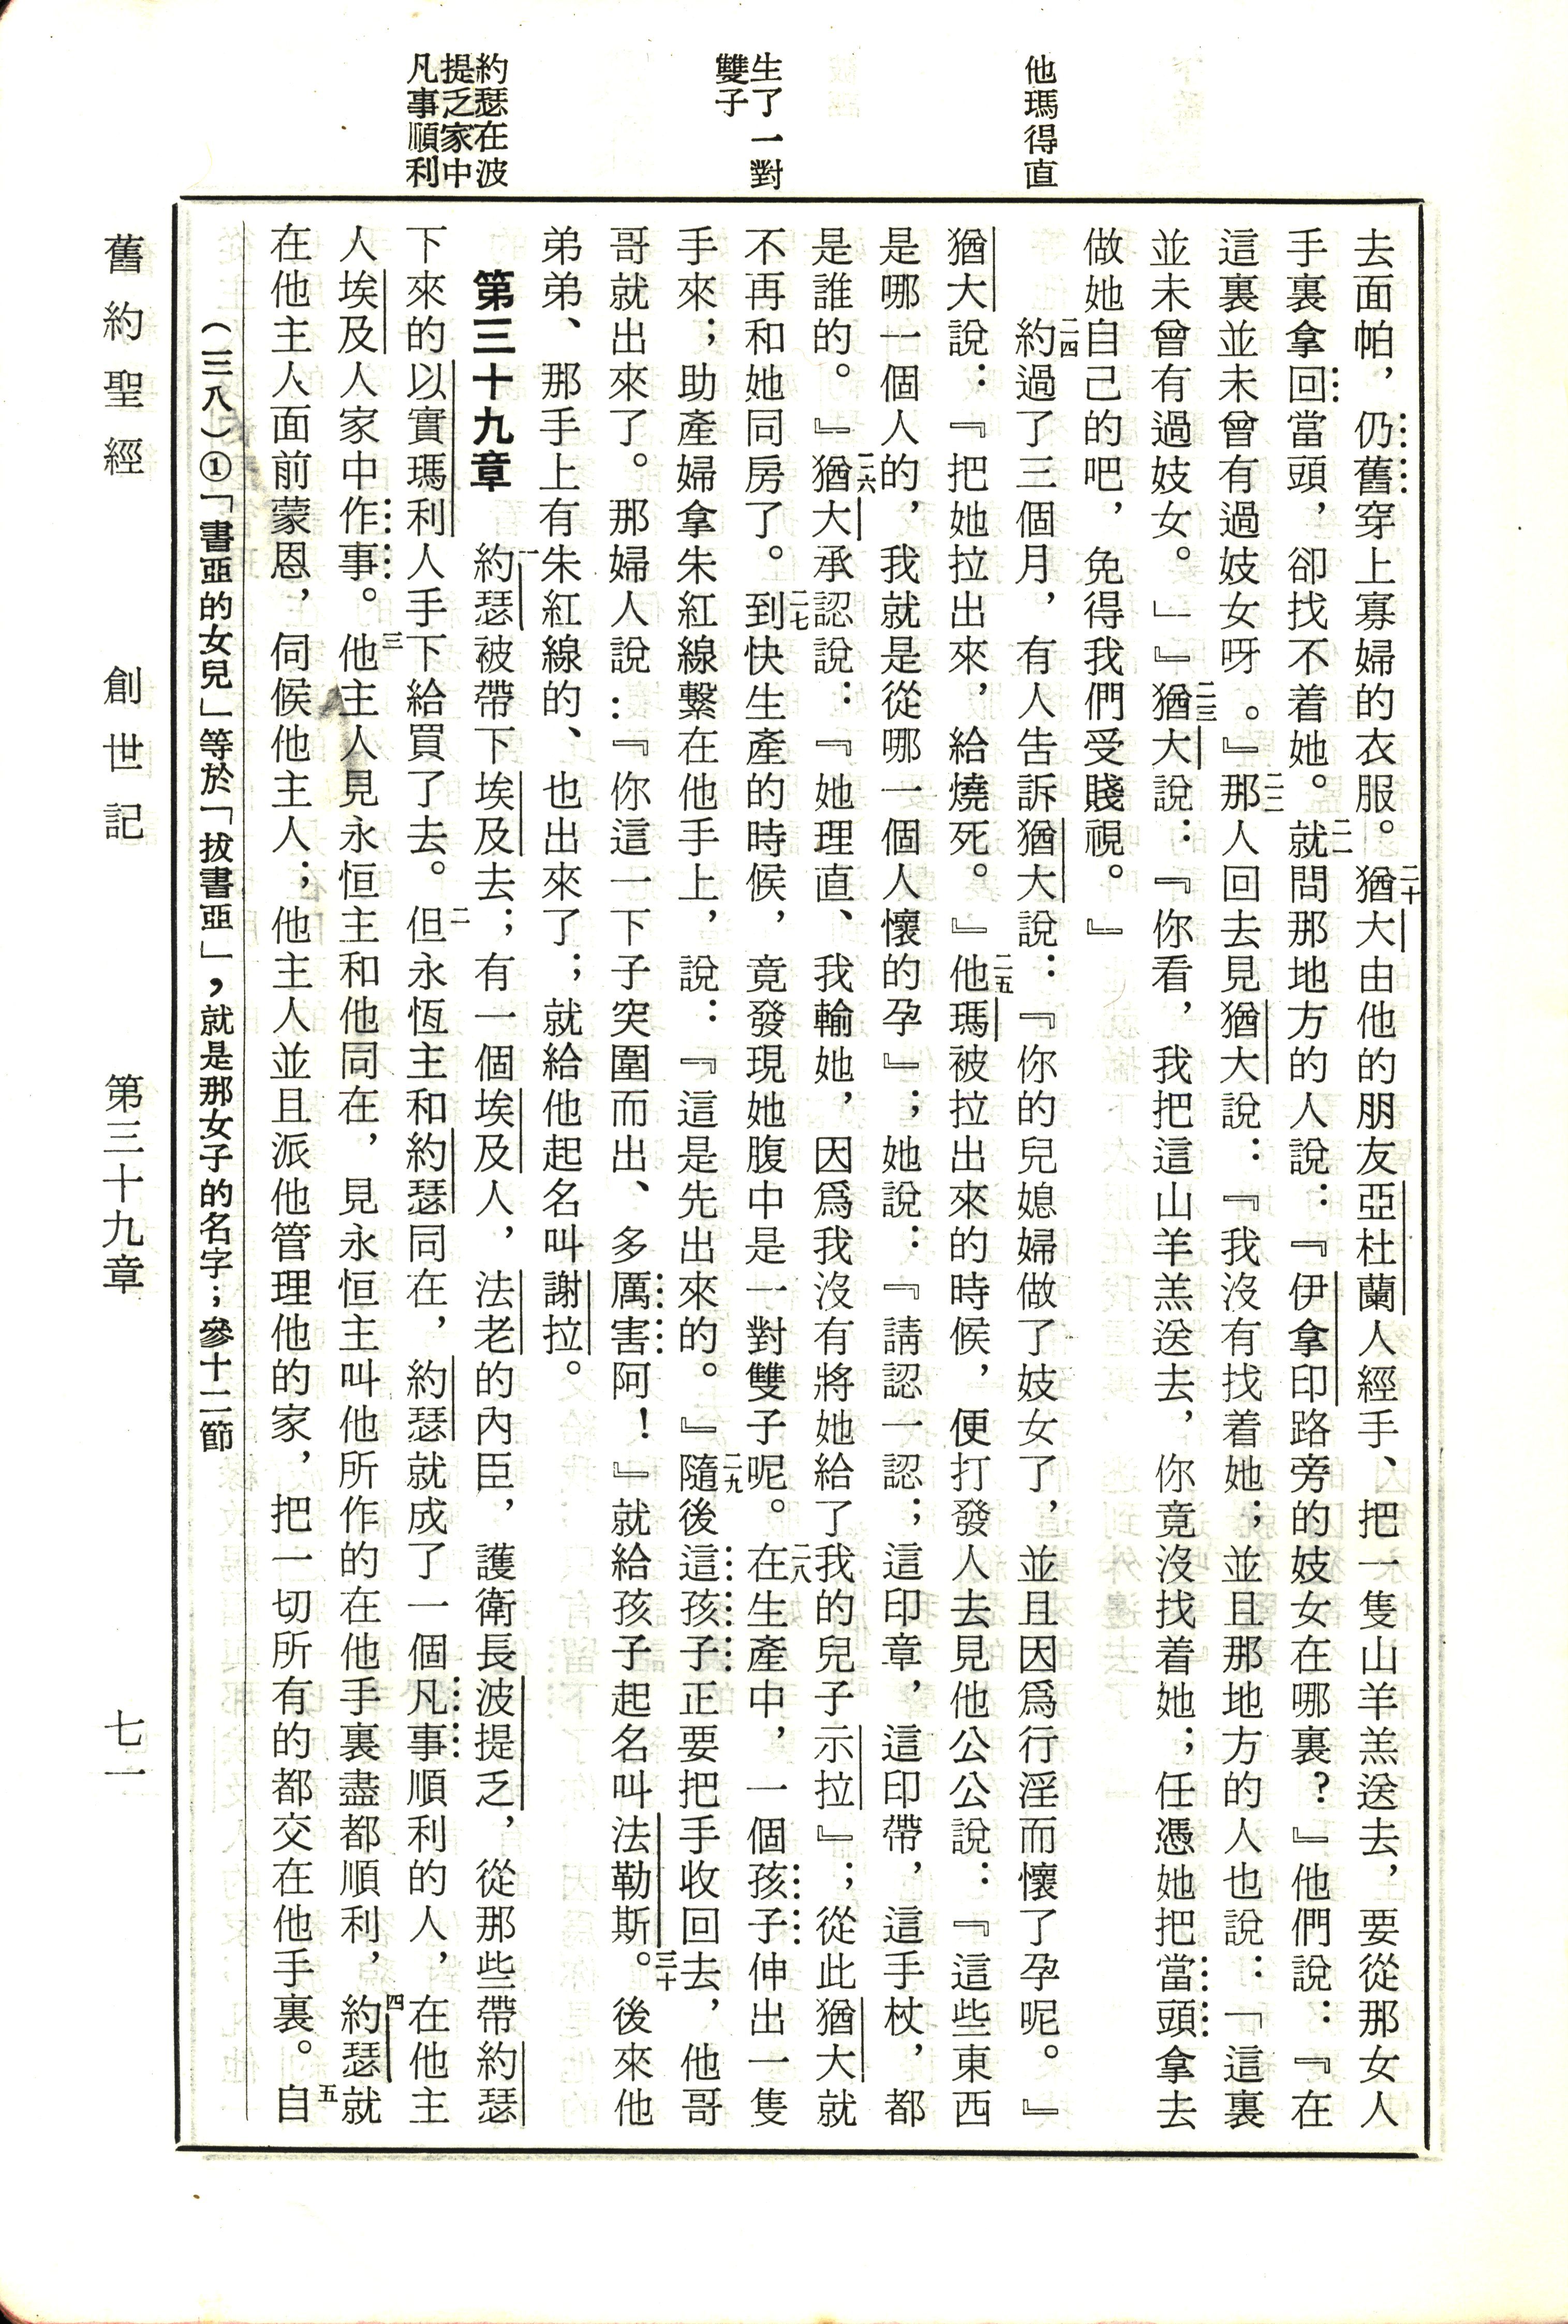 他瑪得直
生了一對
雙子
約瑟在波
提乏家中
凡事順利
去面帕，仍舊穿上寡婦的衣服。二十猶大由他的朋友亞杜蘭人經手、把一隻山羊羔送去，要從那女人
手裏拿回當頭，卻找不着她。二一就問那地方的人說：『伊拿印路旁的妓女在哪裏？』他們說：『在
這裏並未曾有過妓女呀。』二二那人回去見猶大說：『我沒有找着她；並且那地方的人也說：「這裏
並未曾有過妓女。」』二三猶大說：『你看，我把這山羊羔送去，你竟沒找着她；任憑她把當頭拿去
做她自己的吧，免得我們受賤視。』
二四約過了三個月，有人告訴猶大說：『你的兒媳婦做了妓女了，並且因爲行淫而懷了孕呢。』
猶大說：『把她拉出來，給燒死。』二五他瑪被拉出來的時候，便打發人去見他公公說：『這些東西
是哪一個人的，我就是從哪一個人懷的孕』；她說：『請認一認；這印章，這印帶，這手杖，都
是誰的。』二六猶大承認說：『她理直、我輸她，因爲我沒有將她給了我的兒子示拉』；從此猶大就
不再和她同房了。二七到快生產的時候，竟發現她腹中是一對雙子呢。二八在生產中，一個孩子伸出一隻
手來；助產婦拿朱紅線繫在他手上，說：『這是先出來的。』二九隨後這孩子正要把手收回去，他哥
哥就出來了。那婦人說：『你這一下子突圍而出、多厲害阿！』就給孩子起名叫法勒斯。三十後來他
弟弟、那手上有朱紅線的、也出來了；就給他起名叫謝拉。
第三十九章　一約瑟被帶下埃及去；有一個埃及人，法老的內臣，護衛長波提乏，從那些帶約瑟
下來的以實瑪利人手下給買了去。二但永恆主和約瑟同在，約瑟就成了一個凡事順利的人，在他主
人埃及人家中作事。三他主人見永恒主和他同在，見永恒主叫他所作的在他手裏盡都順利，四約瑟就
在他主人面前蒙恩，伺候他主人；他主人並且派他管理他的家，把一切所有的都交在他手裏。五自
（三八）①「書亞的女兒」等於「拔書亞」，就是那女子的名字；參十二節
舊約聖經　創世記　第三十九章　七一